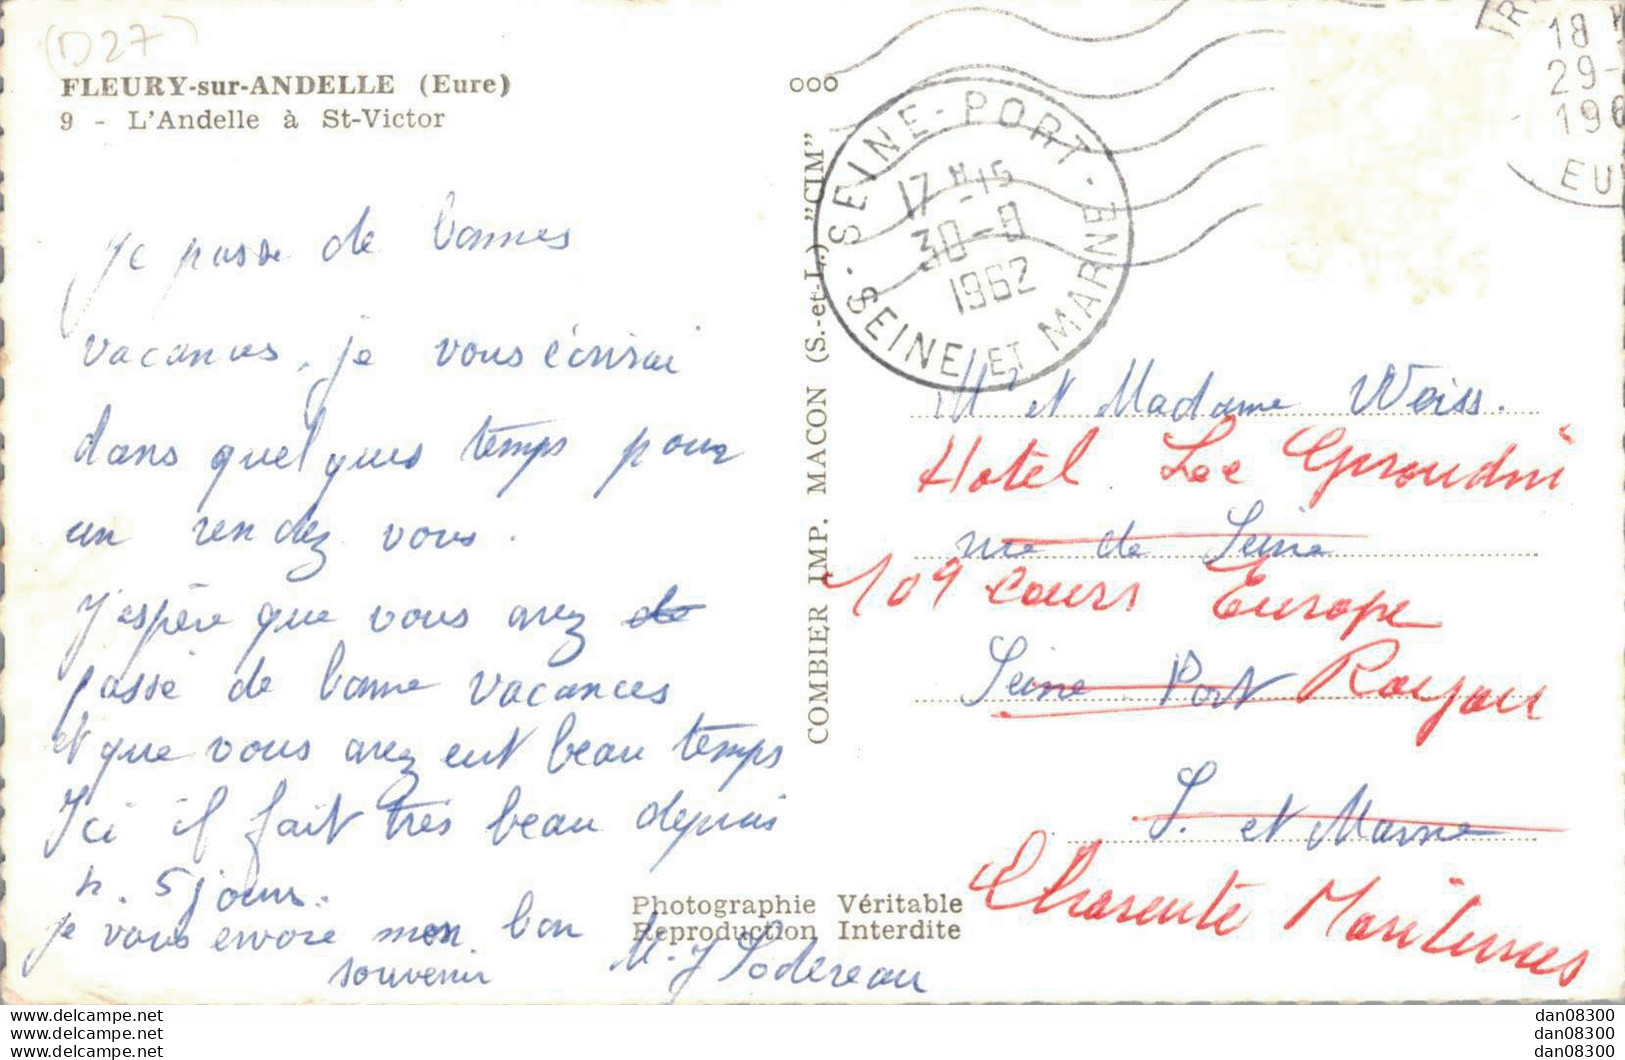 (D27)
FLEURY-sur-ANDELLE (Eure)
9 - L'Andelle à St-Victor
Je passe de bonnes
vacances, je vous écrirai
dans quelques temps pour
un rendez vous.
J'espère que vous avez de
passé de bonne vacances
et que vous avez eut beau temps
Ici il fait très beau depuis
4. 5 jours.
je vous envoie mon bon
souvenir
COMBIER IMP. MACON (S.-et-L.) "CIM"
Photographie Véritable
Reproduction Interdite
SEINE-PORT
17 H-15
30-8
1962
SEINE ET MARNE
18 H
29-
196
EU
Mr et Madame Weiss.
Hotel Les
rue de Seine
109 Cours Europe
Seine Port Royan
S. et Marne
Charente Maritimes
dan08300
dan08300
dan08300
dan08300
dan08300
dan08300